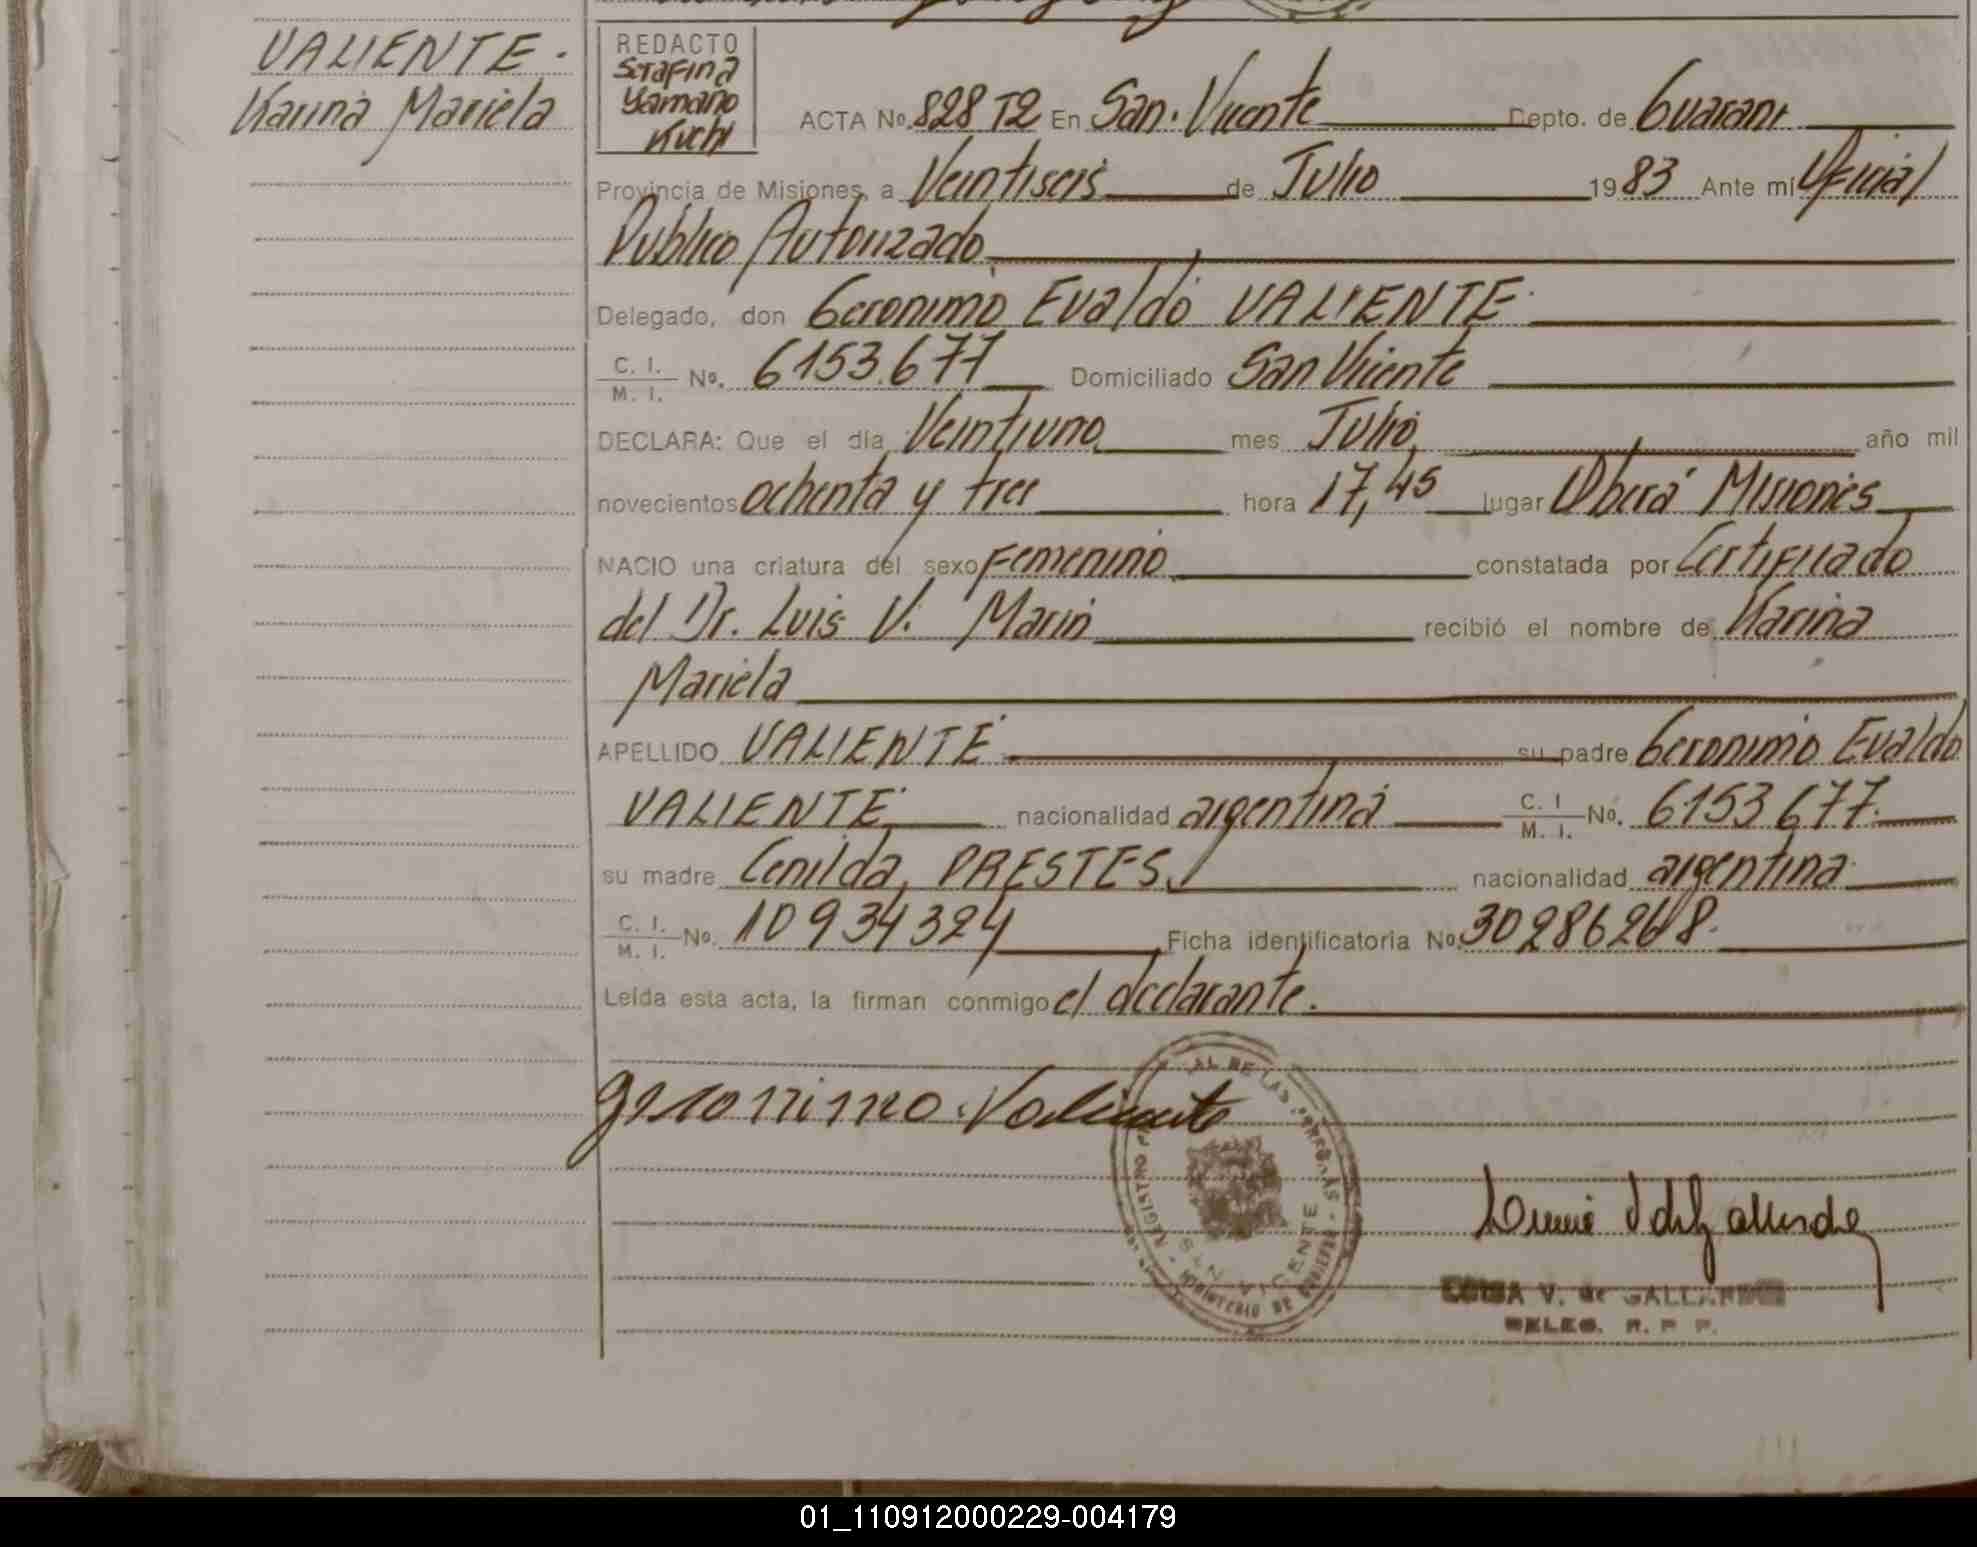 VALIENTE.
Karina Mariela
REDACTO
Serafina
Yamano
Kuchi
ACTA No. 828 T2 En San Vicente Depto. de Guarani
Provincia de Misiones, a Veintiseis de Julio 1983 Ante mi Oficial
Publico Autorizado
Delegado, don Geronimo Evaldo VALIENTE
C. I.
M. I. No. 6153.677 Domiciliado San Vicente
DECLARA: Que el día Veintiuno mes Julio año mil
novecientos ochenta y tres hora 17,45 lugar Oberá Misiones
NACIO una criatura del sexo Femenino constatada por Certificado
del Dr. Luis V. Marin recibió el nombre de Karina
Mariela
APELLIDO VALIENTE su padre Geronimo Evaldo
VALIENTE nacionalidad argentina C. I
M. I. No. 6153677.
su madre Cenilda PRESTES nacionalidad argentina
C. I.
M. I. No. 10934324 Ficha identificatoria No. 30286268.
Leída esta acta, la firman conmigo el declarante.
Geronimo Valiente
REGISTRO
AL DE LAS PERSONAS
SAN VICENTE
MINISTERIO DE GOBIERNO
LUISA V. de GALLARDO
DELEG. R. P. P.
01_110912000229-004179